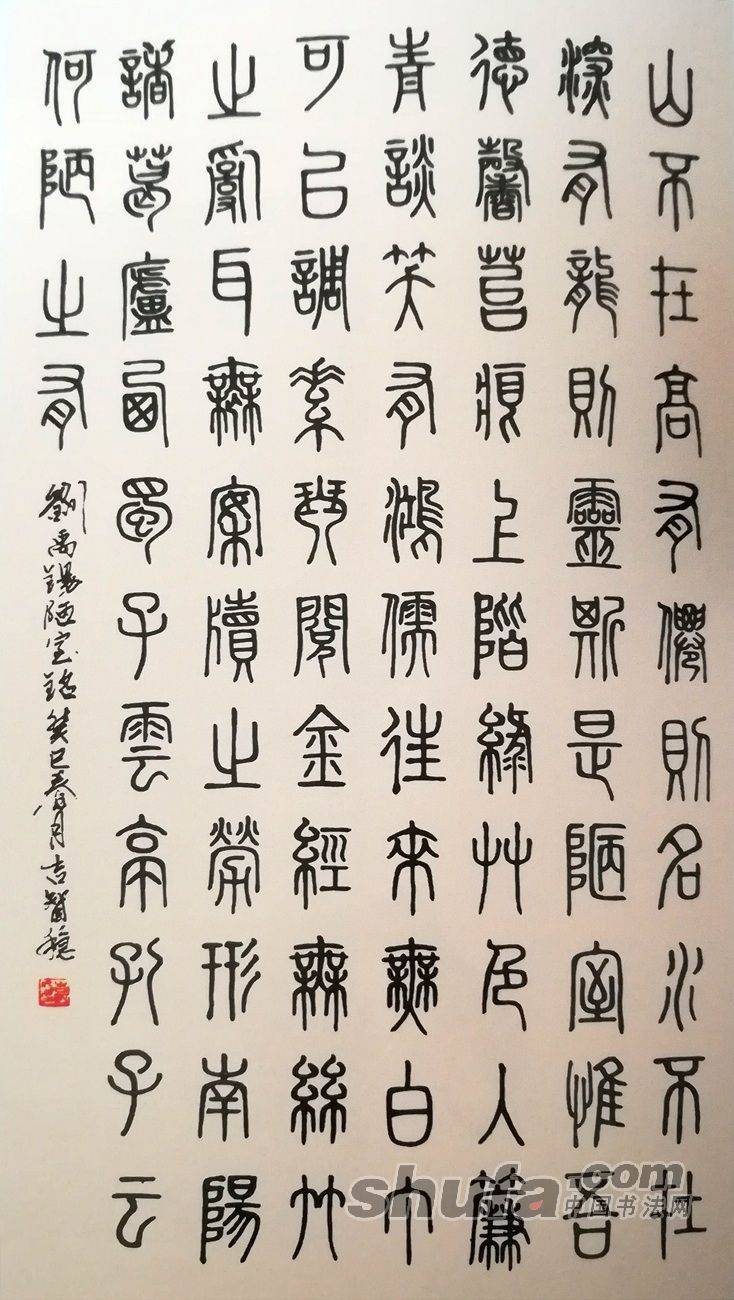 山不在高有僊則名水不在
深有龍則靈斯是陋室惟吾
德馨苔痕上階緑艸色入簾
青談笑有鴻儒往來無白丁
可以調素琴閱金經無絲竹
之亂耳無案牘之勞形南陽
諸葛廬西蜀子雲亭孔子云
何陋之有
劉禹錫陋室銘癸巳春月吉智穩
shufa.com
中国书法网